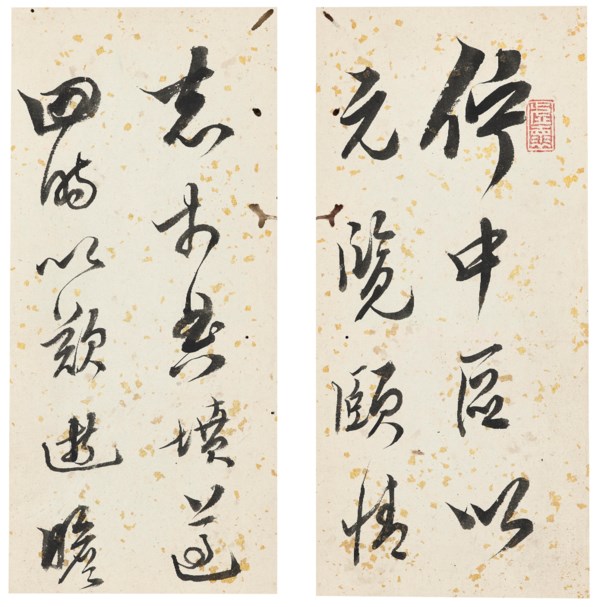 佇中區以
元覽頤情
志於典墳遵
四時以歎逝瞻